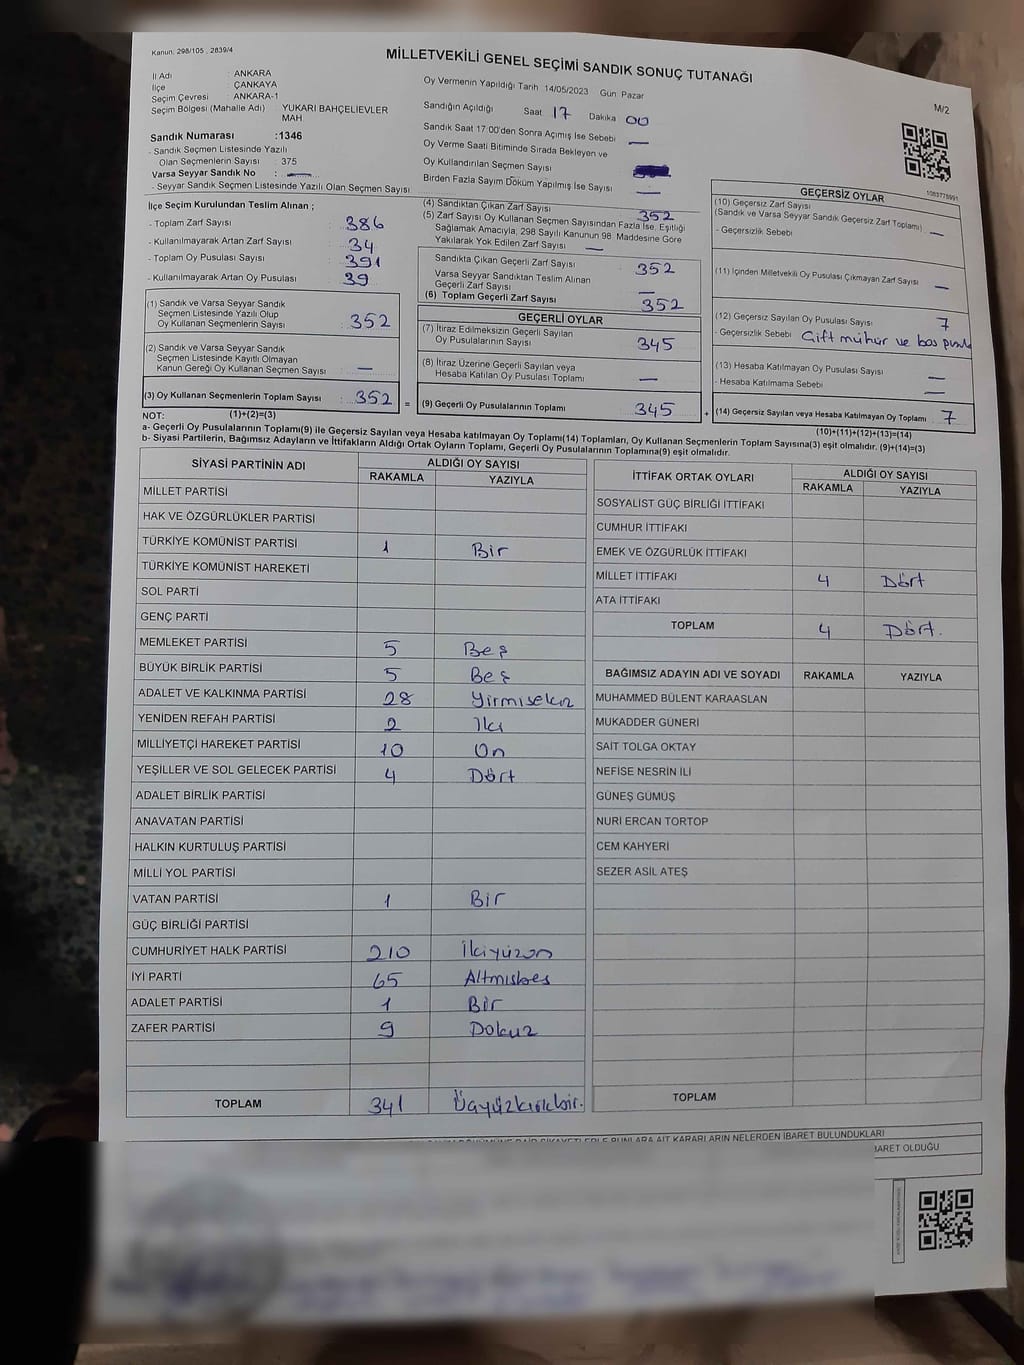 Kanun: 298/105 , 2839/4
MİLLETVEKİLİ GENEL SEÇİMİ SANDIK SONUÇ TUTANAĞI
M/2
İl Adı : ANKARA
İlçe : ÇANKAYA
Seçim Çevresi : ANKARA-1
Seçim Bölgesi (Mahalle Adı) YUKARI BAHÇELİEVLER
MAH.
Sandık Numarası :1346
- Sandık Seçmen Listesinde Yazılı
Olan Seçmenlerin Sayısı : 375
Varsa Seyyar Sandık No : —
- Seyyar Sandık Seçmen Listesinde Yazılı Olan Seçmen Sayısı
Oy Vermenin Yapıldığı Tarih 14/05/2023 Gün Pazar
Sandığın Açıldığı Saat 17 Dakika 00
Sandık Saat 17:00'den Sonra Açılmış İse Sebebi —
Oy Verme Saati Bitiminde Sırada Bekleyen ve
Oy Kullandırılan Seçmen Sayısı
Birden Fazla Sayım Döküm Yapılmış İse Sayısı —
İlçe Seçim Kurulundan Teslim Alınan ;
- Toplam Zarf Sayısı : 386
- Kullanılmayarak Artan Zarf Sayısı : 34
- Toplam Oy Pusulası Sayısı : 391
- Kullanılmayarak Artan Oy Pusulası : 39
(1) Sandık ve Varsa Seyyar Sandık
Seçmen Listesinde Yazılı Olup
Oy Kullanan Seçmenlerin Sayısı : 352
(2) Sandık ve Varsa Seyyar Sandık
Seçmen Listesinde Kayıtlı Olmayan
Kanun Gereği Oy Kullanan Seçmen Sayısı : —
(3) Oy Kullanan Seçmenlerin Toplam Sayısı : 352 =
(1)+(2)=(3)
(4) Sandıktan Çıkan Zarf Sayısı 352
(5) Zarf Sayısı Oy Kullanan Seçmen Sayısından Fazla İse, Eşitliği
Sağlamak Amacıyla, 298 Sayılı Kanunun 98. Maddesine Göre
Yakılarak Yok Edilen Zarf Sayısı —
Sandıkta Çıkan Geçerli Zarf Sayısı 352
Varsa Seyyar Sandıktan Teslim Alınan
Geçerli Zarf Sayısı —
(6) Toplam Geçerli Zarf Sayısı 352
GEÇERLİ OYLAR
(7) İtiraz Edilmeksizin Geçerli Sayılan
Oy Pusulalarının Sayısı 345
(8) İtiraz Üzerine Geçerli Sayılan veya
Hesaba Katılan Oy Pusulası Toplamı —
(9) Geçerli Oy Pusulalarının Toplamı 345 +
GEÇERSİZ OYLAR
(10) Geçersiz Zarf Sayısı
(Sandık ve Varsa Seyyar Sandık Geçersiz Zarf Toplamı) —
- Geçersizlik Sebebi
(11) İçinden Milletvekili Oy Pusulası Çıkmayan Zarf Sayısı —
(12) Geçersiz Sayılan Oy Pusulası Sayısı 7
- Geçersizlik Sebebi Çift mühür ve boş pusula
(13) Hesaba Katılmayan Oy Pusulası Sayısı —
- Hesaba Katılmama Sebebi —
(14) Geçersiz Sayılan veya Hesaba Katılmayan Oy Toplamı 7
(10)+(11)+(12)+(13)=(14)
NOT:
a- Geçerli Oy Pusulalarının Toplamı(9) ile Geçersiz Sayılan veya Hesaba katılmayan Oy Toplamı(14) Toplamları, Oy Kullanan Seçmenlerin Toplam Sayısına(3) eşit olmalıdır. (9)+(14)=(3)
b- Siyasi Partilerin, Bağımsız Adayların ve İttifakların Aldığı Ortak Oyların Toplamı, Geçerli Oy Pusulalarının Toplamına(9) eşit olmalıdır.
SİYASİ PARTİNİN ADI ALDIĞI OY SAYISI
RAKAMLA YAZIYLA
MİLLET PARTİSİ
HAK VE ÖZGÜRLÜKLER PARTİSİ
TÜRKİYE KOMÜNİST PARTİSİ 1 Bir
TÜRKİYE KOMÜNİST HAREKETİ
SOL PARTİ
GENÇ PARTİ
MEMLEKET PARTİSİ 5 Beş
BÜYÜK BİRLİK PARTİSİ 5 Beş
ADALET VE KALKINMA PARTİSİ 28 Yirmisekiz
YENİDEN REFAH PARTİSİ 2 İki
MİLLİYETÇİ HAREKET PARTİSİ 10 On
YEŞİLLER VE SOL GELECEK PARTİSİ 4 Dört
ADALET BİRLİK PARTİSİ
ANAVATAN PARTİSİ
HALKIN KURTULUŞ PARTİSİ
MİLLİ YOL PARTİSİ
VATAN PARTİSİ 1 Bir
GÜÇ BİRLİĞİ PARTİSİ
CUMHURİYET HALK PARTİSİ 210 İkiyüzon
İYİ PARTİ 65 Altmışbeş
ADALET PARTİSİ 1 Bir
ZAFER PARTİSİ 9 Dokuz
TOPLAM 341 Üçyüzkırkbir.
İTTİFAK ORTAK OYLARI ALDIĞI OY SAYISI
RAKAMLA YAZIYLA
SOSYALİST GÜÇ BİRLİĞİ İTTİFAKI
CUMHUR İTTİFAKI
EMEK VE ÖZGÜRLÜK İTTİFAKI
MİLLET İTTİFAKI 4 Dört
ATA İTTİFAKI
TOPLAM 4 Dört.
BAĞIMSIZ ADAYIN ADI VE SOYADI RAKAMLA YAZIYLA
MUHAMMED BÜLENT KARAASLAN
MUKADDER GÜNERİ
SAİT TOLGA OKTAY
NEFİSE NESRİN İLİ
GÜNEŞ GÜMÜŞ
NURİ ERCAN TORTOP
CEM KAHYERİ
SEZER ASİL ATEŞ
TOPLAM
KARARLARIN NELERDEN İBARET BULUNDUKLARI
BARET OLDUĞU